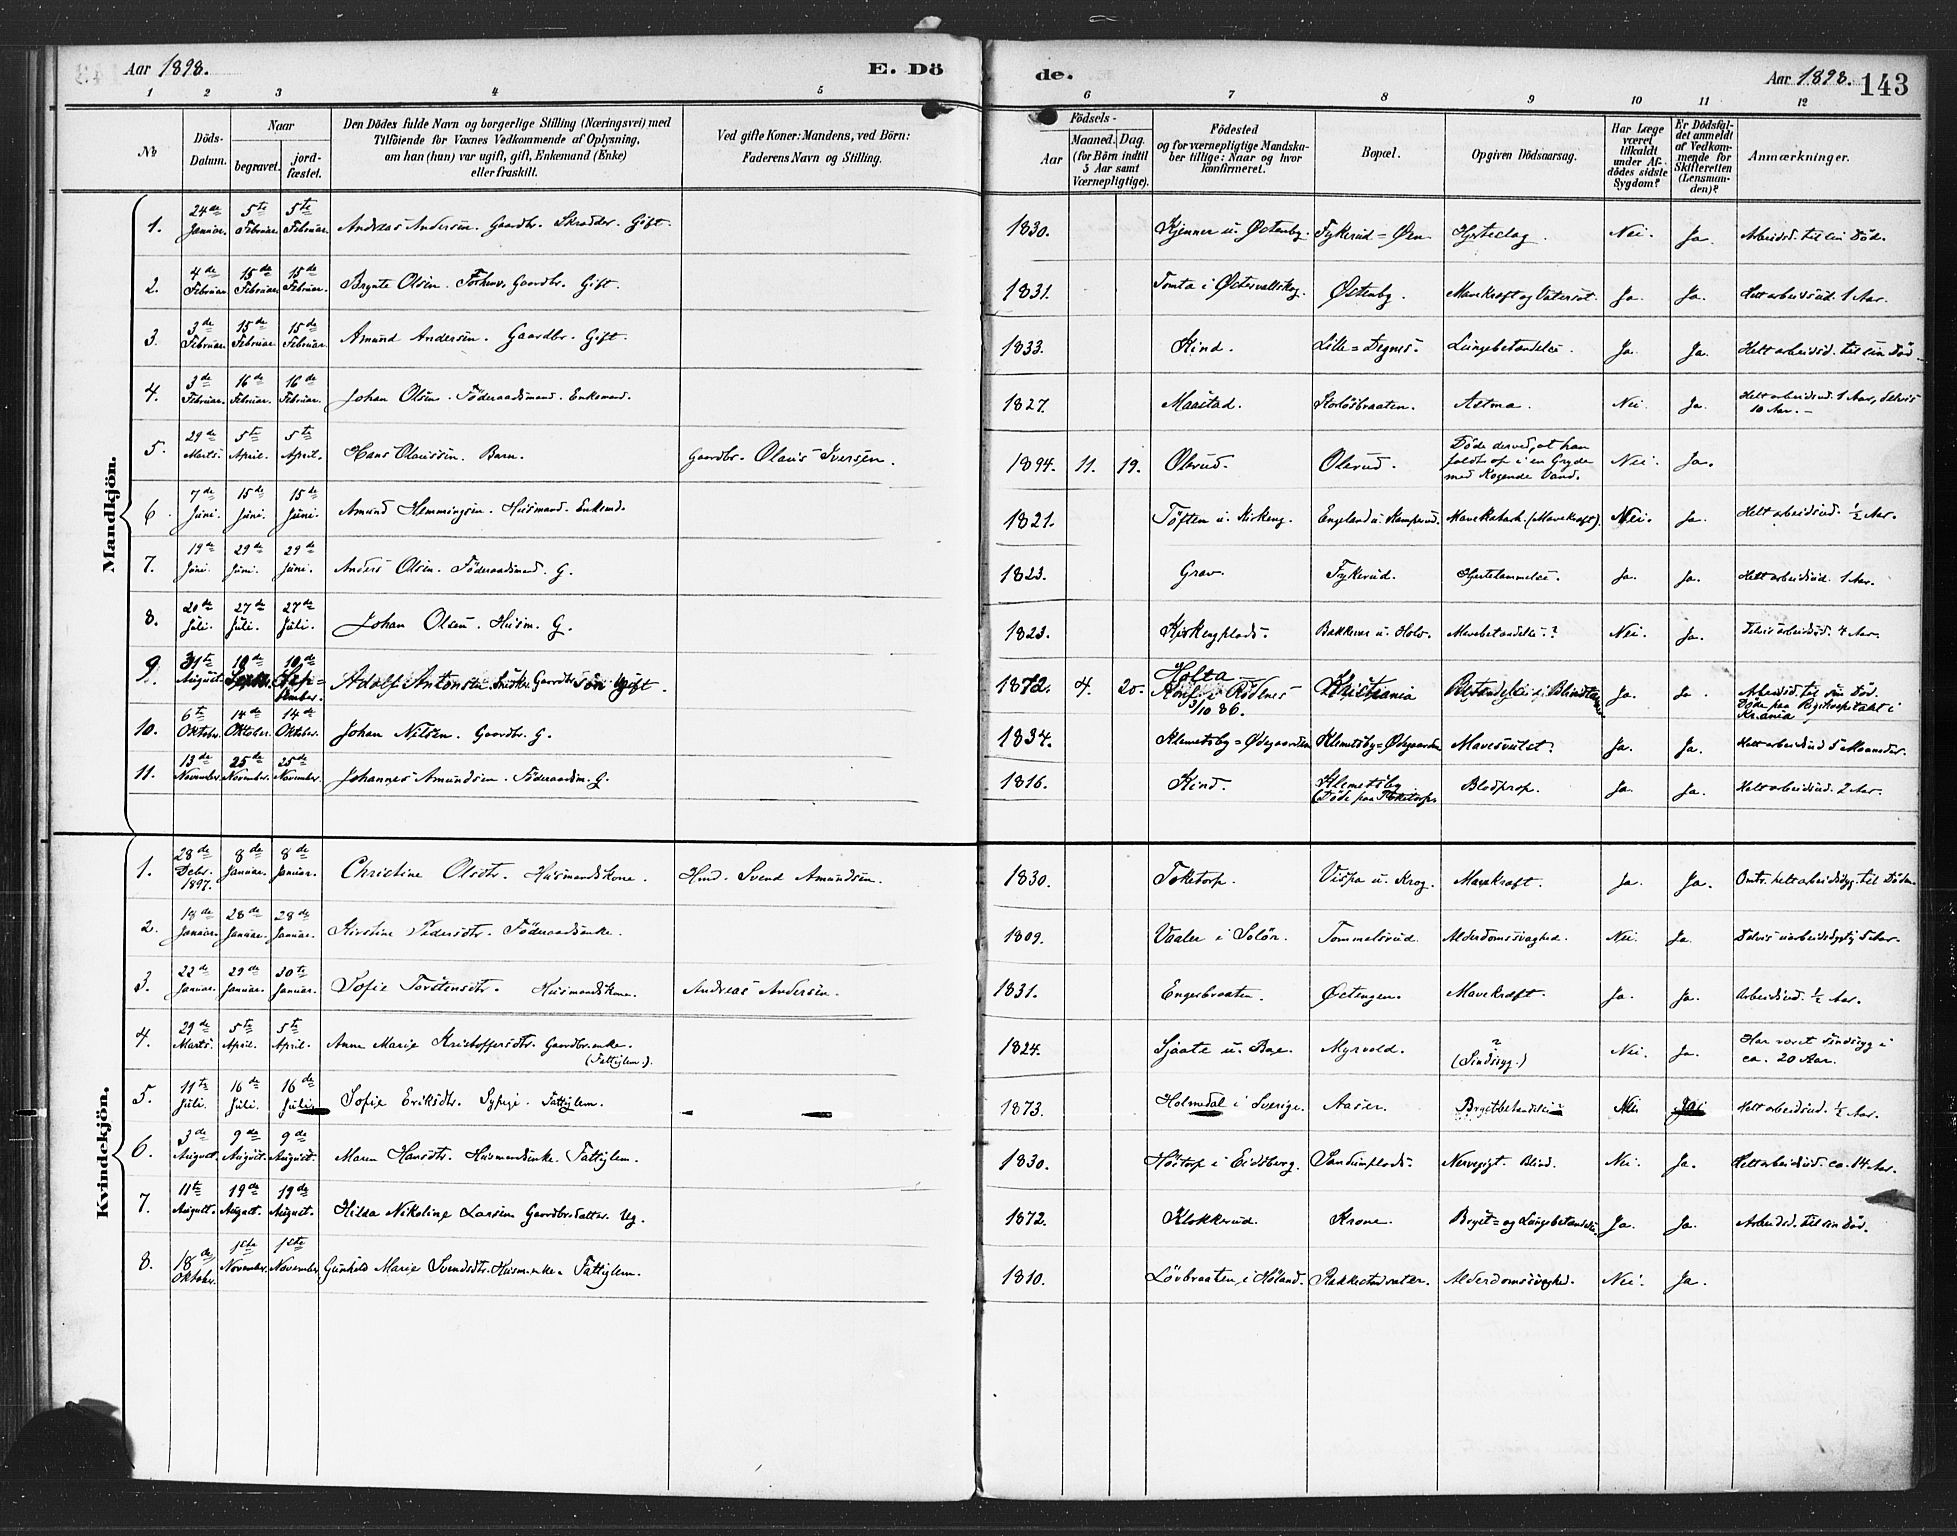 Aar 1898. E. Dö de. Aar 1898. 143
1 2 3 4 5 6 7 8 9 10 11 12
№ Döds-Datum. Naar begravet. jord-fæstet. Den Dödes fulde Navn og borgerlige Stilling (Næringsvei) med Tilföiende for Voxnes Vedkommende af Oplysning, om han (hun) var ugift, gift, Enkemand (Enke) eller fraskilt. Ved gifte Koner: Mandens, ved Börn: Faderens Navn og Stilling. Födsels- Aar Maaned. Dag. (for Börn indtil 5 Aar samt Værnepligtige). Födested og for værnepligtige Mandskaber tillige: Naar og hvor konfirmeret. Bopæl. Opgiven Dödsaarsag. Har Læge været tilkaldt under Afdödes sidste Sygdom? Er Dödsfaldet anmeldt af Vedkommende for Skifteretten (Lensmanden)? Anmærkninger.
Mandkjön.
1. 24de Januar. 5te Februar. 5te Februar. Andreas Andersen. Gaardbr. Skrædder. Gift. 1830. Kjenner u. Østenby. Fykerud=Øen Hjerteslag. Nei. Ja. Arbeidsd. til sin Död.
2. 4de Februar. 15de Februar. 15de Februar. Brynte Olsen. Forhenv. Gaardbr. Gift. 1831. Tomta i Østervallskog. Østenby. Mavekræft og Vatersot. Ja. Ja. Helt arbeidsud. 1 Aar.
3. 3de Februar. 15de Februar. 15de Februar. Amund Andersen. Gaardbr. Gift. 1833. Kind. Lille=Degnes. Lungebetændelse. Ja. Ja. Helt arbeidsd. til sin Död.
4. 3de Februar. 16de Februar. 16de Februar. Johan Olsen. Föderaadsmand. Enkemand. 1827. Maastad. Korlösbraaten. Astma. Nei. Ja. Helt arbeidsud. 1 Aar, delvis 10 Aar.
5. 29de Marts. 5te April. 5te April. Hans Olaussen. Barn. Gaardbr. Olaus Iversen. 1894. 11. 19. Olerud. Olerud. Döde derved, at han faldt op i en Gryde med kogende Vand. Nei. Ja.
6. 7de Juni. 15de Juni. 15de Juni. Amund Hemmingsen. Husmand. Enkemd. 1821. Töften u. Kirkeng. Engeland u. Kamperud. Mavekatarh. (Mavekræft). Nei. Ja. Helt arbeidsud. ½ Aar.
7. 19de Juni. 29de Juni. 29de Juni. Anders Olsen. Föderaadsmand. G. 1823. Grav. Fykerud. Hjertelammelse. Ja. Ja. Helt arbeidsud. 1 Aar.
8. 20de Juli. 27de Juli. 27de Juli. Johan Olsen. Husm. G. 1823. Kirkengplads. Bakkerne u. Holo. Mavebetændelse? Nei. Ja. Delvis arbeidsud. 4 Aar.
9. 31te August. 10de Septbr. 10de September. Adolf Antonsen Snedkr. Gaardbr. Sön Ugift. 1872. 4. 20. Holta Konf. i Rödenes 3/10 86. Kristiania Betændelse i Blindtarmen Ja. Ja. Arbeidsd. til sin Död. Döde paa Rigshospitalet i Kr.ania
10. 6te Oktober. 14de Oktober. 14de Oktober. Johan Nilsen. Gaardbr. G. 1834. Klemetsby=Ödegaarden Klemetsby=Ödegaarden Mavesvulst? Ja. Ja. Helt arbeidsud 5 Maaneder.
11. 13de November. 25de November. 25de November. Johannes Amundsen. Föderaadsm. G. 1816. Kind. Klemetsby (Döde paa Toketorp) Blodprop. Ja. Ja. Helt arbeidsud. 2 Aar.
Kvindekjön.
1. 28de Debr. 1897. 8de Januar. 8de Januar. Christine Olsdtr. Husmandskone. Hmd. Svend Amundsen. 1830. Toketorp. Vispa u. Krog. Mavekræft. Ja. Ja. Omtr. helt arbeidsdyg. til Döden.
2. 18de Januar. 28de Januar. 28de Januar. Kirstine Pedersdtr. Föderaadsenke. 1809. Vaaler i Solör. Tommelsrud. Alderdomssvaghed. Nei. Ja. Delvis uarbeidsdygtig 5 Aar.
3. 22de Januar. 29de Januar. 30te Januar. Sofie Torstensdtr. Husmandskone. Andreas Andersen. 1831. Engerbraaten. Østengen. Mavekræft. Ja. Ja. Arbeidsud. ½ Aar.
4. 29de Marts. 5te April. 5te April. Anne Marie Kristoffersdtr. Gaardbr.enke. (Fattiglem). 1824. Sjaate u. Bøe. Myrvold. ? (Sindssyg.) Nei. Ja. Har været sindssyg i ca. 20 Aar.
5. 11te Juli. 16de Juli. 16de Juli. Sofie Eriksdtr. Sypige. Fattiglem. 1873. Holmedal i Sverige. Aaser. Brystbetændelse Nei Ja. Helt arbeidsud. ½ Aar.
6. 3de August. 9de August. 9de August. Maren Hansdtr. Husmandsenke. Fattiglem. 1830. Höstorp i Eidsberg. Sandemplads. Nervegigt. Blind. Nei. Ja. Helt arbeidsud. ca. 14 Aar.
7. 11te August. 19de August. 19de August. Hilda Nikoline Larsen Gaardbr.datter. Ug. 1872. Klokkerud. Krone. Bryst= og Lungebetændelse. Ja. Ja. Arbeidsd. til sin Död.
8. 18de Oktober. 1ste November. 1ste November. Gunhild Marie Svendsdtr. Husm.enke. Fattiglem. 1810. Lövbraaten i Höland. Rakkestadsæter. Alderdomssvaghed. Nei. Ja.